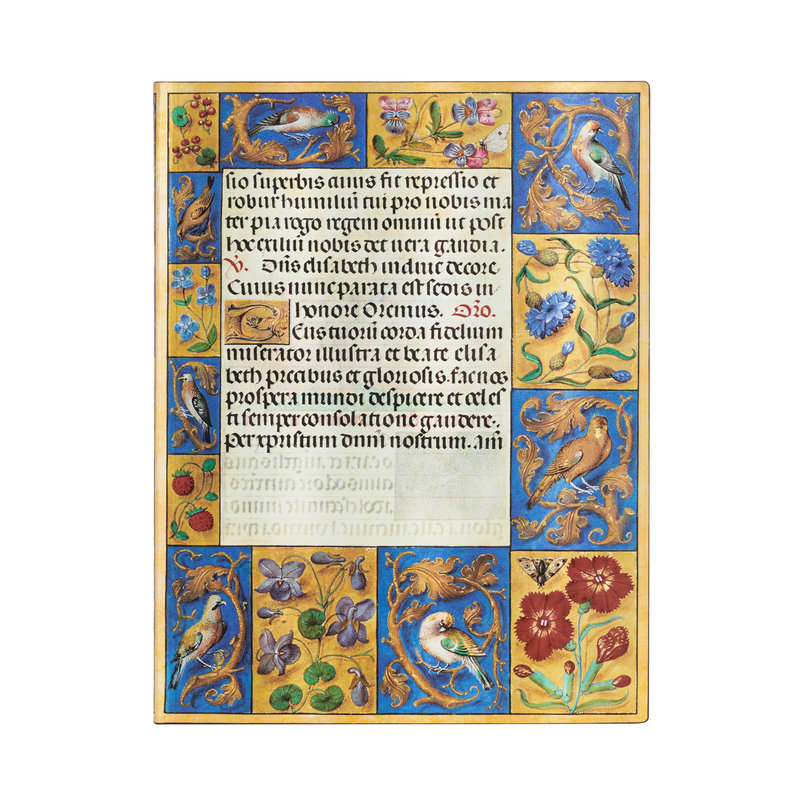 sio superbis cuius fit repressio et
robur humiliū cui pro nobis ma
ter pia rogo regem omniū ut post
hoc exiliū nobis det uera gaudia.
V. Dn̄s elisabeth induit decore.
Cuius nunc parata est sedis in
honore Oremus. Orō.
Deus tuorū corda fidelium
miserator illustra et beate elisa
beth precibus et gloriosis. fac nos
prospera mundi despicere et celes
ti semper consolatione gaudere.
Per xpristum dn̄m nostrum. Am̄